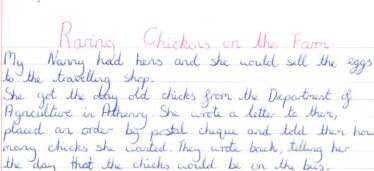 Raring Chickens on the Farm
My Nanny had hens and she would sell the eggs
to the travelling shop.
She got the day old chicks from the Department of
Agriculture in Athenry. She wrote a letter to them,
placed an order by postal cheque and told them how
many chicks she wanted. They wrote back, telling her
the day that the chicks would be on the bus.